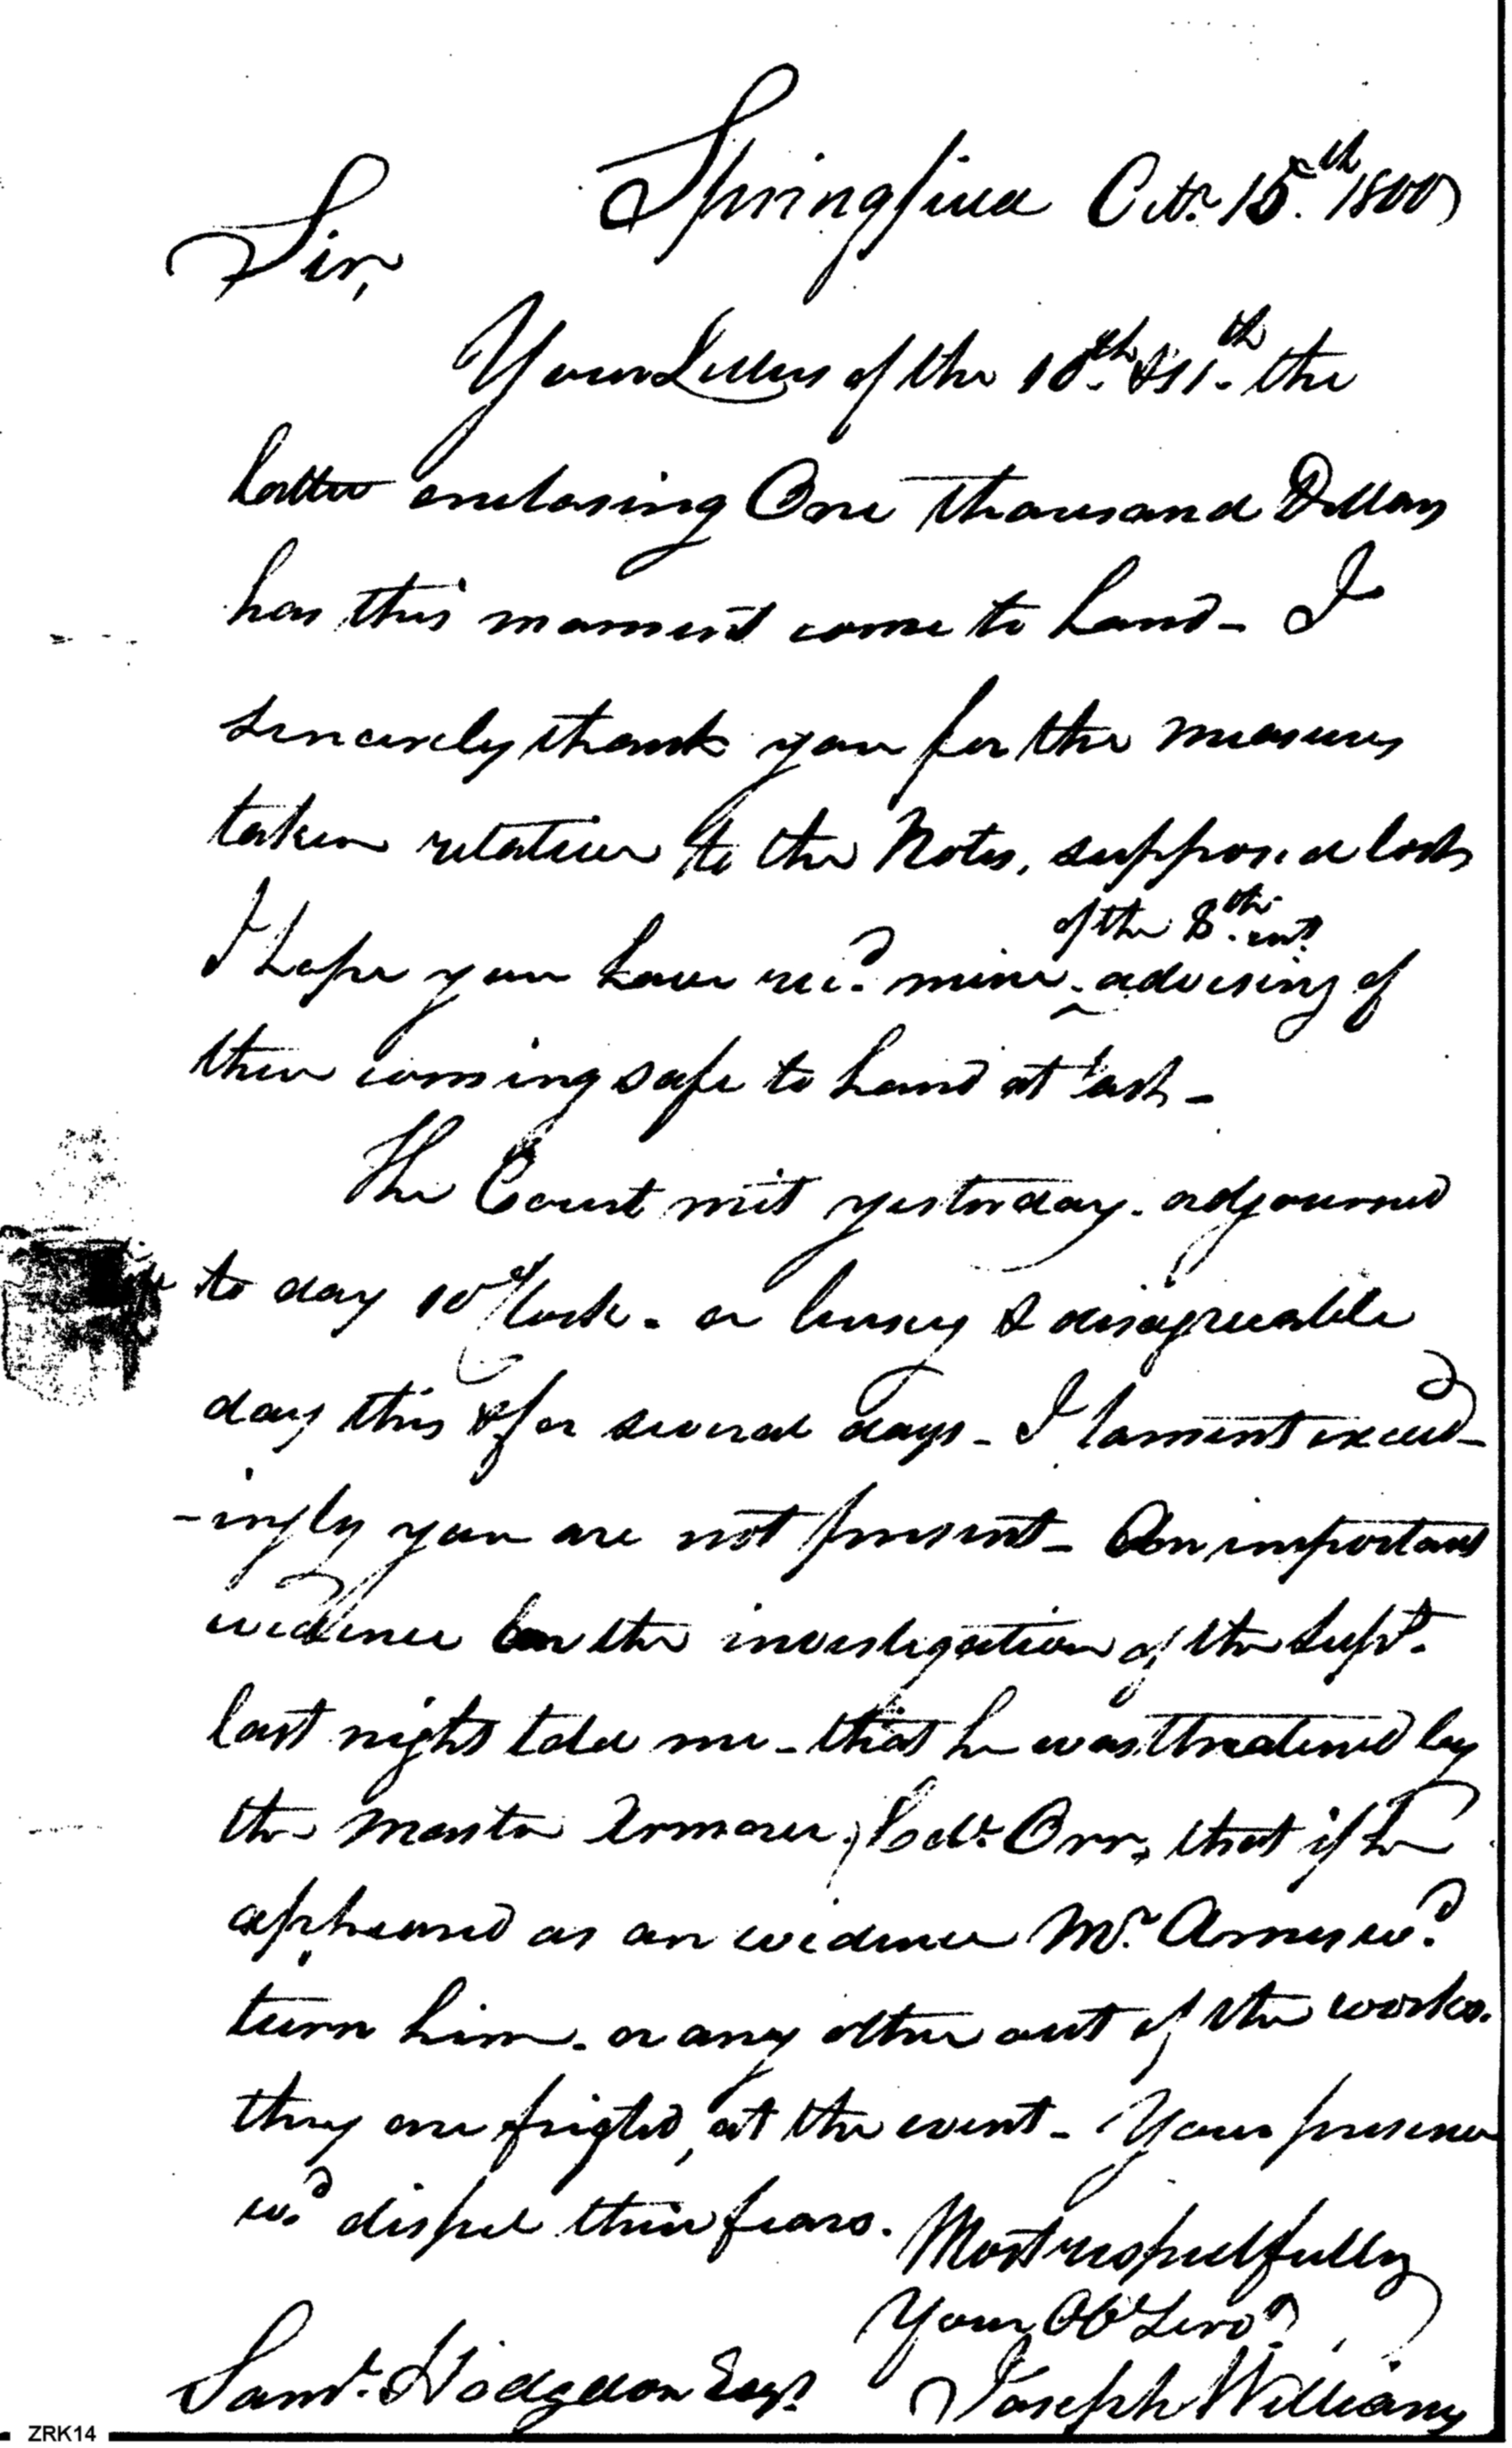 Springfield Octr. 15th. 1800
Sir,
Your Letters of the 10th. & 11th. the
latter enclosing One thousand Dollars
has this moment come to hand - I
sincerely thank you for the measures
taken relative to the Notes, supposed lost,
of the 8th. inst.
I hope you have recd. mine advising of
their coming safe to hand at last -
The Court met yesterday. adjourned
to day 10 oClock. a busy & disagreeable
day this & for several days - I lament exceed-
-ingly you are not present - An important
evidence on the investigation of the Supt.
last night told me - that he was threatened by
the Master Armorer, Robt. Orr, that if he
appeared as an evidence Mr. Ames wd.
turn him. or any other out of the works.
they are frighted, at the event - Your presence
wd. dispel their fears. Most respectfully
Your Obt. Servt.
Saml. Hodgdon Esqr. Joseph Williams
ZRK14